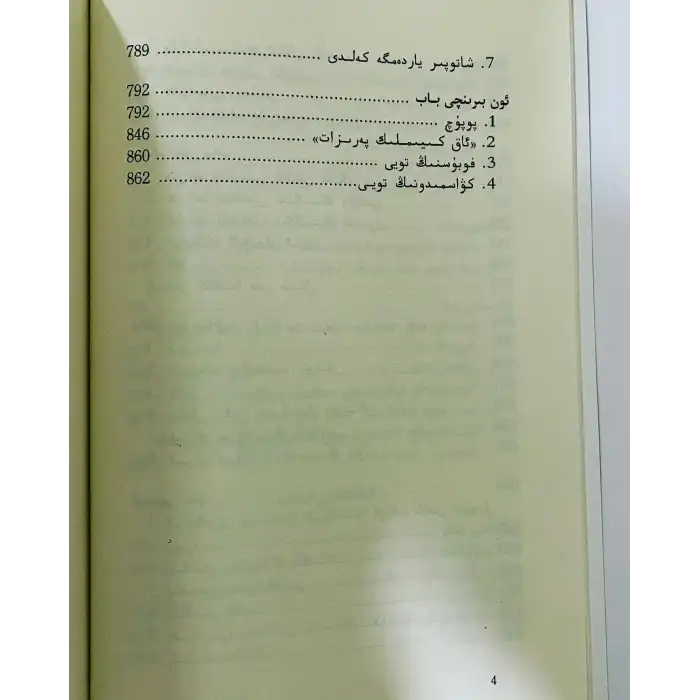 7. شاتوپىر ياردەمگە كەلدى ................................ 789
ئون بىرىنچى باب ................................ 792
1. پوپۇچ ................................ 792
2. «ئاق كىيىملىك پەرىزات» ................................ 846
3. فوبۇسنىڭ تويى ................................ 860
4. كۋاسىمىدونىڭ تويى ................................ 862
4